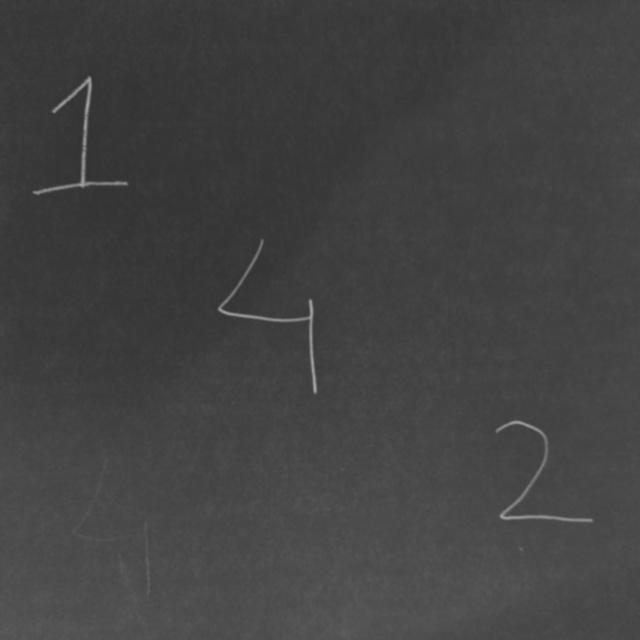 1
4
2
4